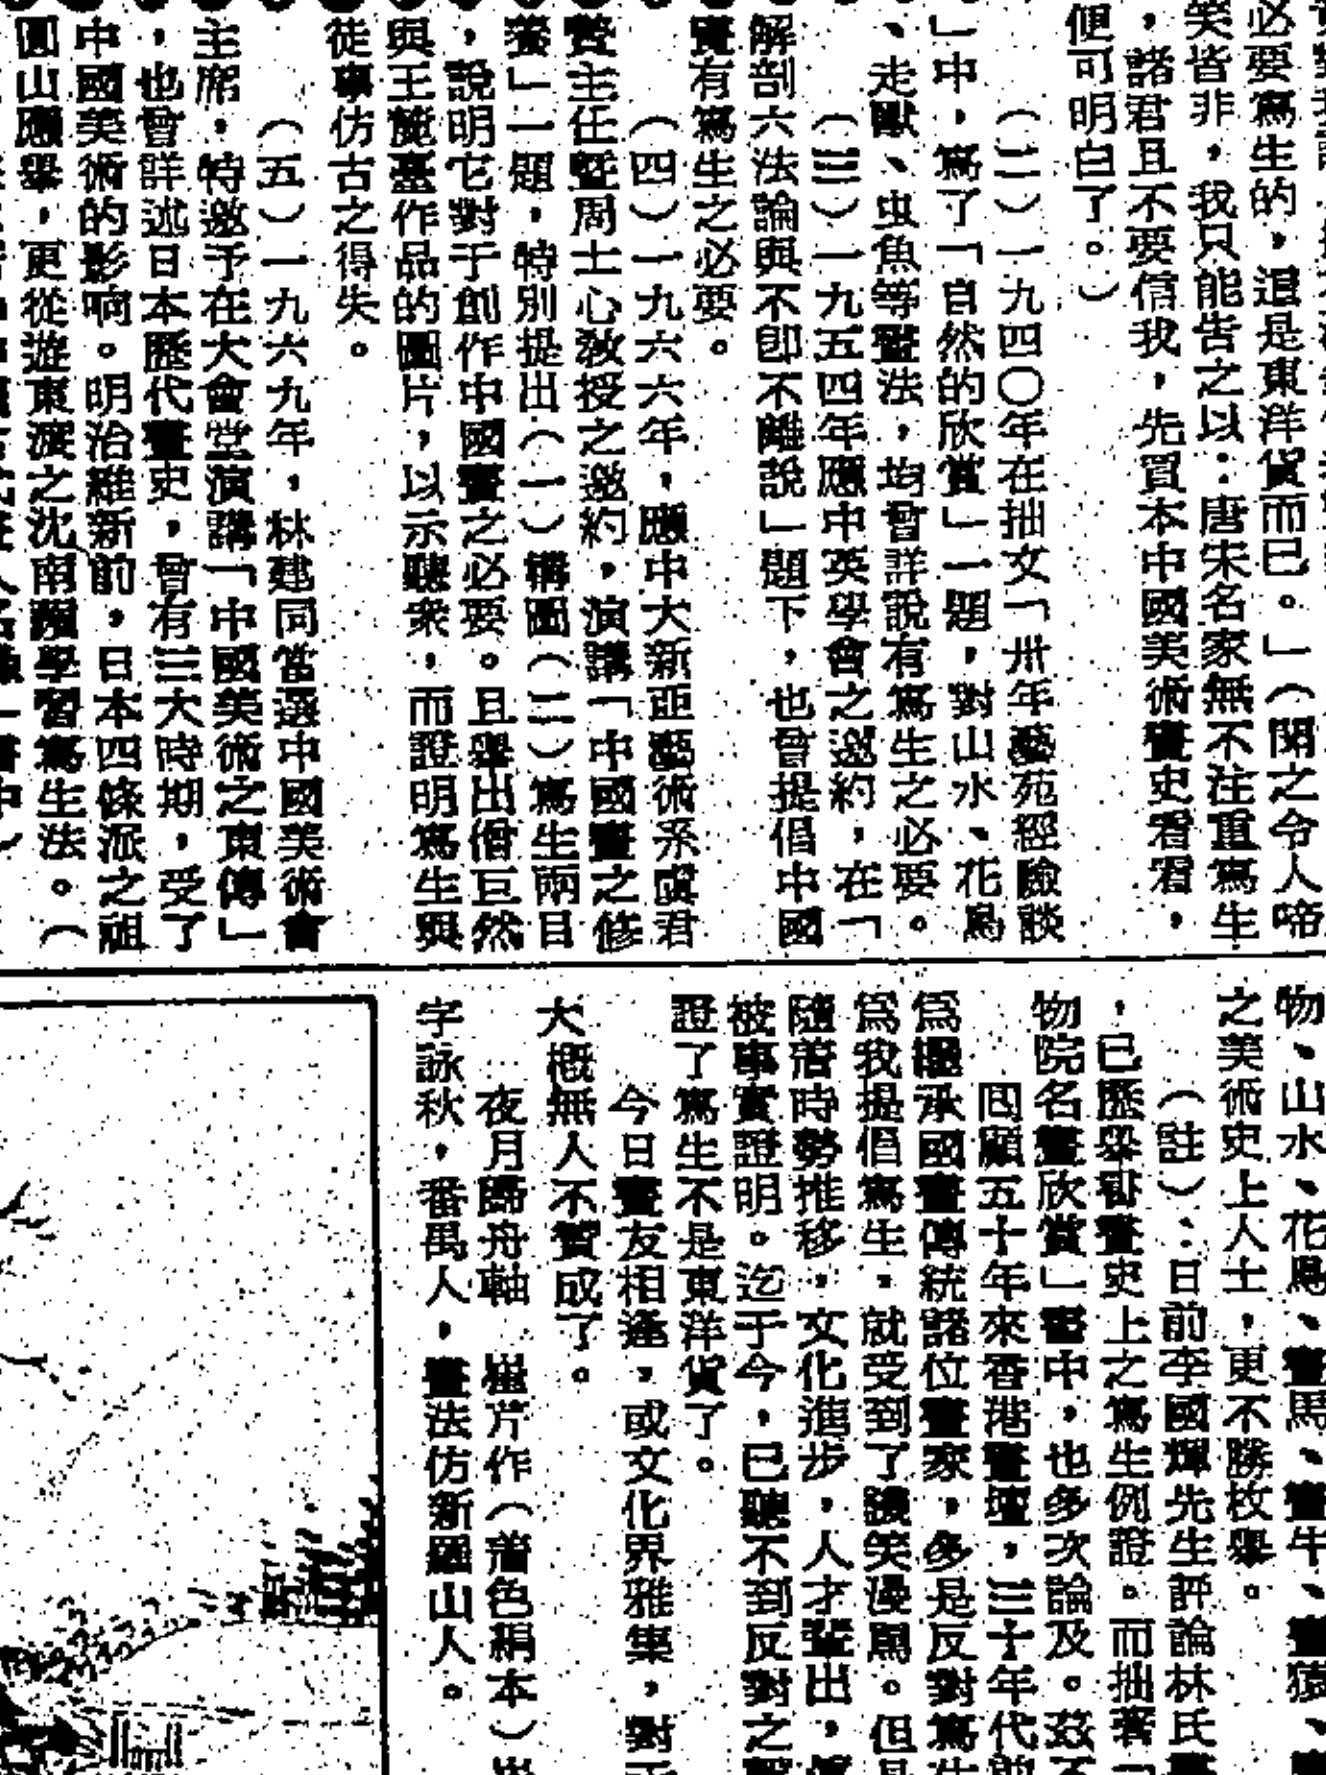 必要寫生的，還是東洋貨而已。」（閱之令人啼
笑皆非，我只能告之以：唐宋名家無不注重寫生
，諸君且不要信我，先買本中國美術畫史看看，
便可明白了。）
（二）一九四〇年在拙文「卅年藝苑經險談
」中，寫了「自然的欣賞」一題，對山水、花鳥
、走獸、虫魚等畫法，均曾詳說有寫生之必要。
（三）一九五四年應中英學會之邀約，在「
解剖六法論與不卽不離說」題下，也曾提倡中國
畫有寫生之必要。
（四）一九六六年，應中大新亞藝術系虞君
贊主任暨周士心敎授之邀約，演講「中國畫之修
養」一題，特別提出（一）構圖（二）寫生兩目
，說明它對于創作中國畫之必要。且舉出僧巨然
與王麓臺作品的圖片，以示聽衆，而證明寫生與
徒事仿古之得失。
（五）一九六九年，林建同當選中國美術會
主席，特邀予在大會堂演講「中國美術之東傳」
，也曾詳述日本歷代畫史，曾有三大時期，受了
中國美術的影响。明治維新前，日本四條派之祖
圓山應舉，更從遊東渡之沈南蘋學習寫生法。（
物、山水、花鳥、畫馬、畫牛、畫猿、
之美術史上人士，更不勝枚舉。
（註）：日前李國輝先生評論林氏
，已歷舉書畫史上之寫生例證。而拙著「
物院名畫欣賞」書中，也多次論及。茲不
囘顧五十年來香港畫壇，三十年代前
爲繼承國畫傳統諸位畫家，多是反對寫生
爲我提倡寫生，就受到了譏笑漫罵。但是
隨着時勢推移，文化進步，人才輩出，
被事實證明。迄于今，已聽不到反對之
證了寫生不是東洋貨了。
今日畫友相逢，或文化界雅集，對于
大概無人不贊成了。
夜月歸舟軸　崔芹作（着色絹本）崔
字詠秋，番禺人，畫法仿新羅山人。